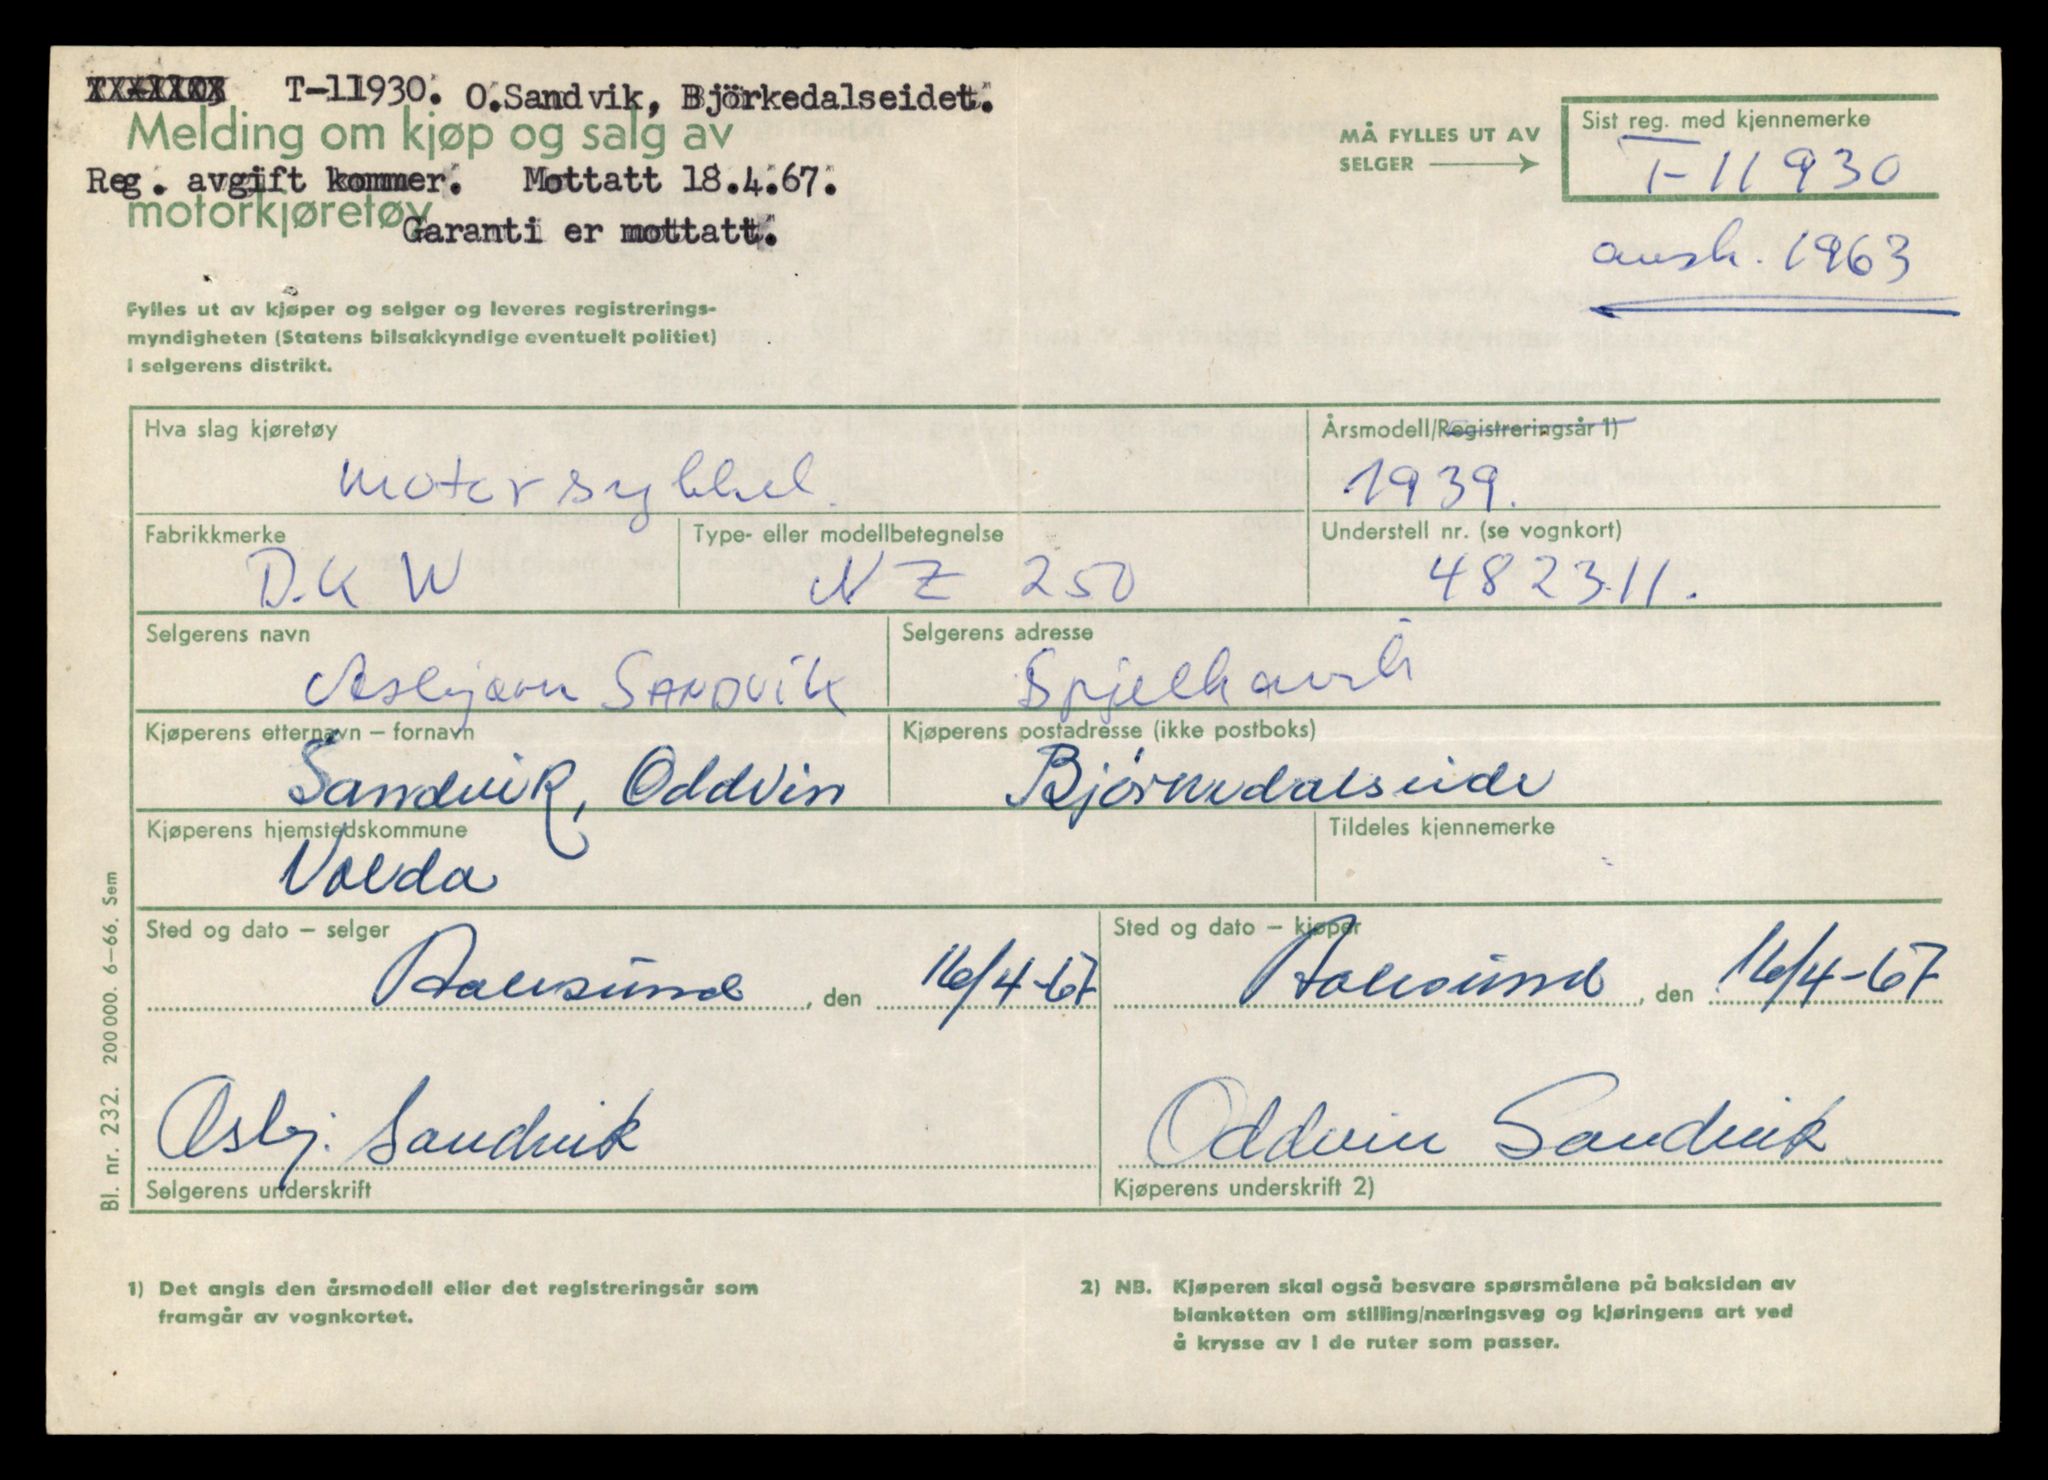 T-11930. O.Sandvik, Björkedalseidet.
Melding om kjøp og salg av
Reg. avgift kommer. Mottatt 18.4.67.
motorkjøretøy
Garanti er mottatt.
MÅ FYLLES UT AV
SELGER
Sist reg. med kjennemerke
T-11930
avsk. 1963
Fylles ut av kjøper og selger og leveres registrerings-
myndigheten (Statens bilsakkyndige eventuelt politiet)
i selgerens distrikt.
Hva slag kjøretøy
Årsmodell/Registreringsår 1)
motorsykkel.
1939.
Fabrikkmerke
Type- eller modellbetegnelse
Understell nr. (se vognkort)
D.K W
NZ 250
482311.
Selgerens navn
Selgerens adresse
Asbjørn SANDVIK
Spjelkavik
Kjøperens etternavn – fornavn
Kjøperens postadresse (ikke postboks)
Sandvik, Oddvin
Bjórkedalseide
Kjøperens hjemstedskommune
Tildeles kjennemerke
Volda
Sted og dato – selger
Sted og dato – kjøper
Aalesund, den 16/4-67
Aalesund, den 16/4-67
Asbj. Sandvik
Oddvin Sandvik
Selgerens underskrift
Kjøperens underskrift 2)
Bl. nr. 232. 200 000. 6–66. Sem
1) Det angis den årsmodell eller det registreringsår som
framgår av vognkortet.
2) NB. Kjøperen skal også besvare spørsmålene på baksiden av
blanketten om stilling/næringsveg og kjøringens art ved
å krysse av i de ruter som passer.